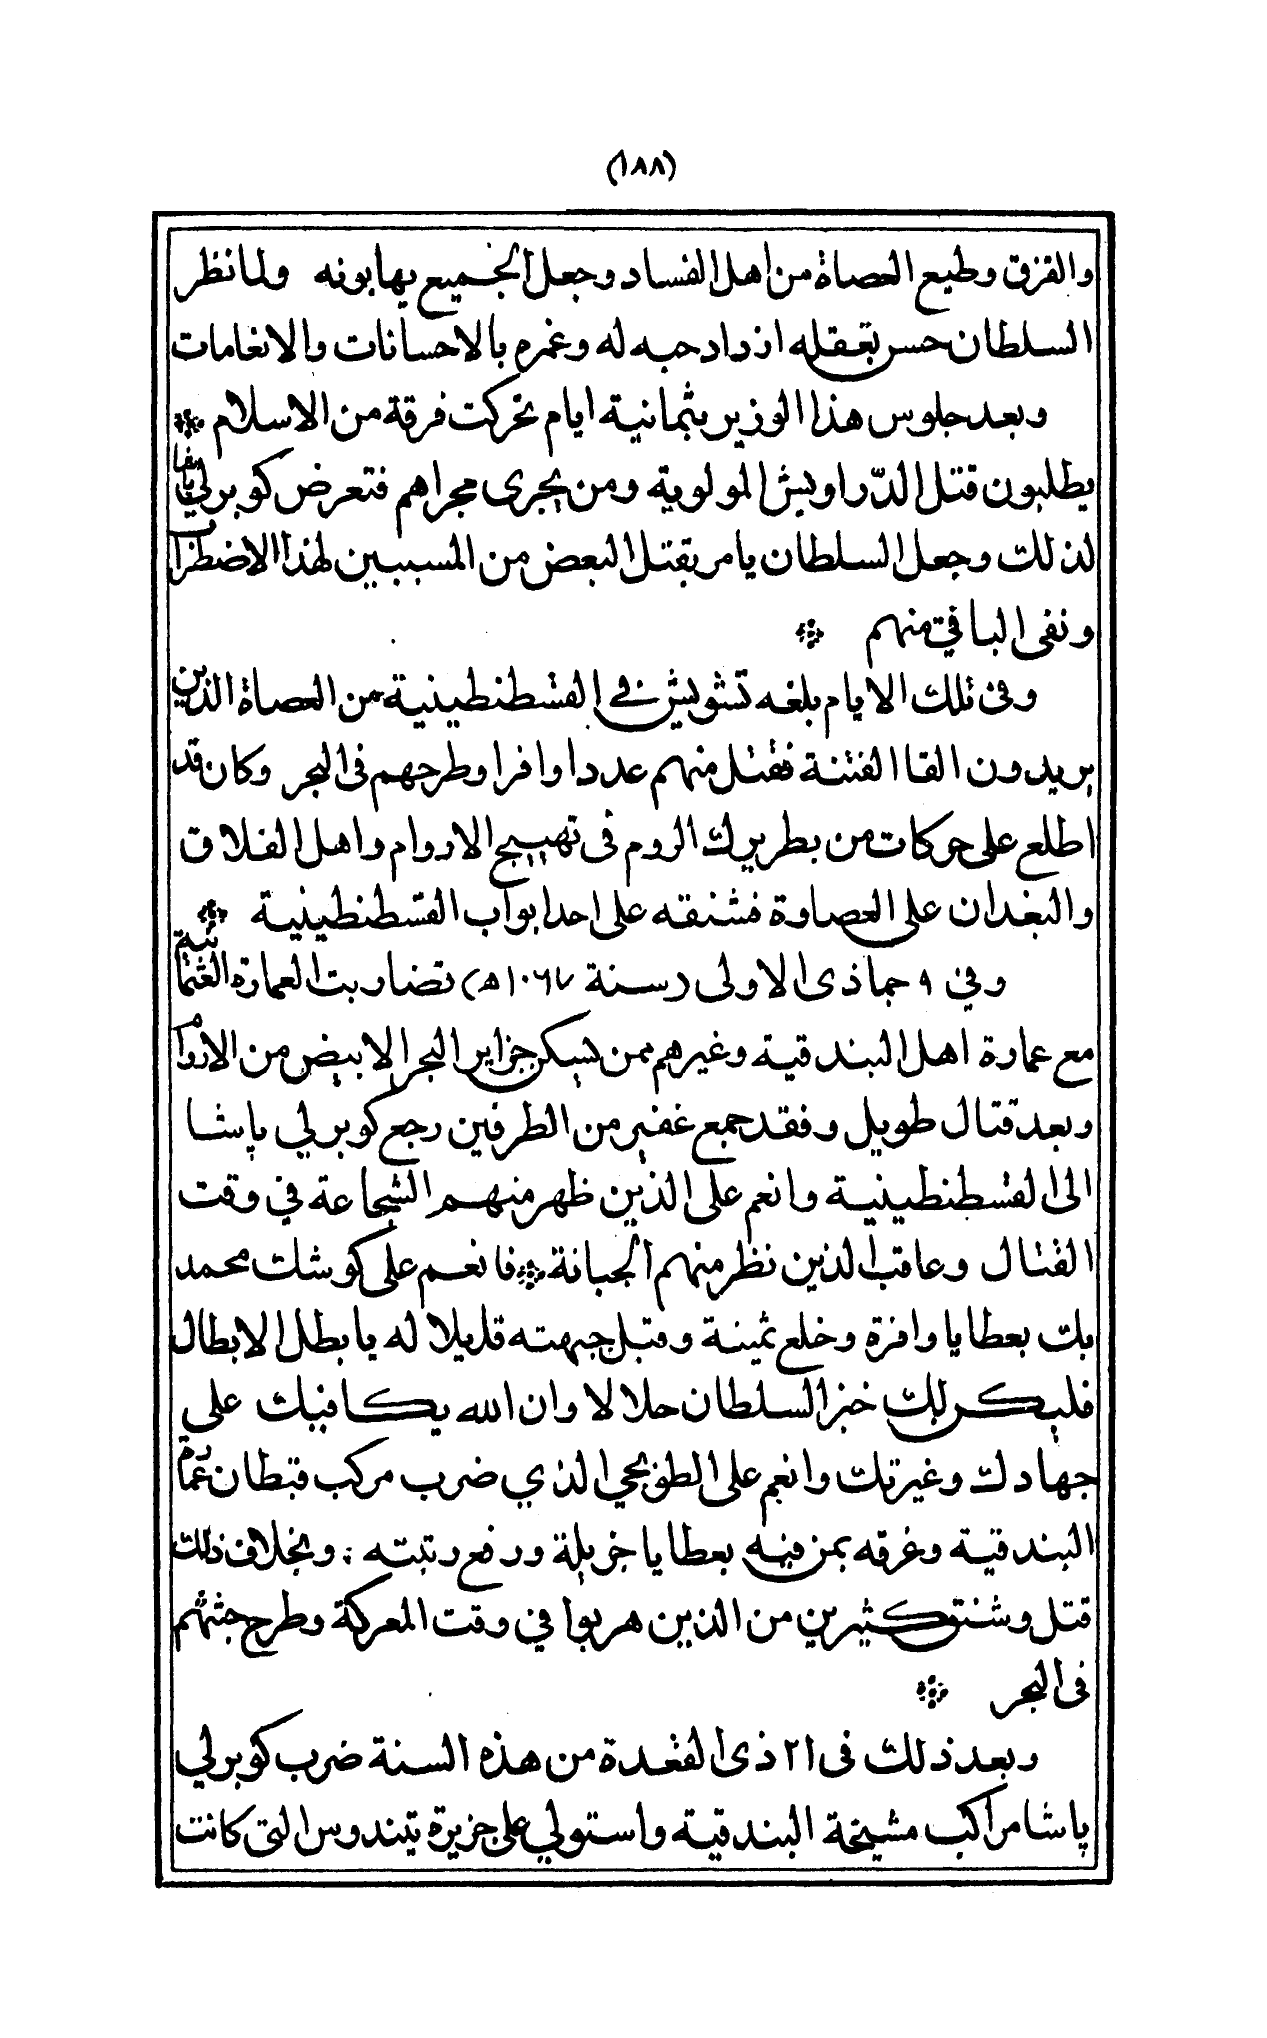 (١٨٨)
والقزق وطيع العصاة من اهل الفساد وجعل الجميع يهابونه ولما نظر
السلطان حسن تعقله ازداد حبه له وغمره بالاحسانات والانعامات
وبعد جلوس هذا الوزير بثمانية ايام تحركت فرقة من الاسلام *
يطلبون قتل الدّراويش المولوية ومن يجرى مجراهم فتعرض كوبرلي باشا
لذلك وجعل السلطان يامر بقتل البعض من المسببين لهذا الاضطراب
ونفى الباقي منهم *
وفى تلك الايام بلغه تشويش في القسطنطينية من العصاة الذين
يريدون القا الفتنة فقتل منهم عددا وافرا وطرحهم فى البحر وكان قد
اطلع على حركات من بطريرك الروم فى تهييج الاروام واهل الفلاق
والبغدان على العصاوة فشنقه على احد ابواب القسطنطينية *
وفي ٩ جماذى الاولى (سنة ١٠٦٧ هـ) تضاربت العمارة العثمانية
مع عمارة اهل البندقية وغيرهم ممن يسكن جزاير البحر الابيض من الاروام
وبعد قتال طويل وفقد جمع غفير من الطرفين رجع كوبرلي پاشا
الى القسطنطينية وانعم على الذين ظهر منهم الشجاعة في وقت
القتال وعاقب الذين نظر منهم الجبانة * فانعم على كوشك محمد
بك بعطايا وافرة وخلع ثمينة وقبل جبهته قايلا له يا بطل الابطال
فليكن لك خبز السلطان حلالا وان الله يكافيك على
جهادك وغيرتك وانعم على الطوبجي الذي ضرب مركب قبطان عمارة
البندقية وغرقه بمن فيه بعطايا جزيلة ورفع رتبته : وبخلاف ذلك
قتل وشنق كثيرين من الذين هربوا في وقت المعركة وطرح جثثهم
فى البحر *
وبعد ذلك فى ٢١ ذى القعدة من هذه السنة ضرب كوبرلي
پاشا مراكب مشيخة البندقية واستولي على جزيرة تيندوس التى كانت